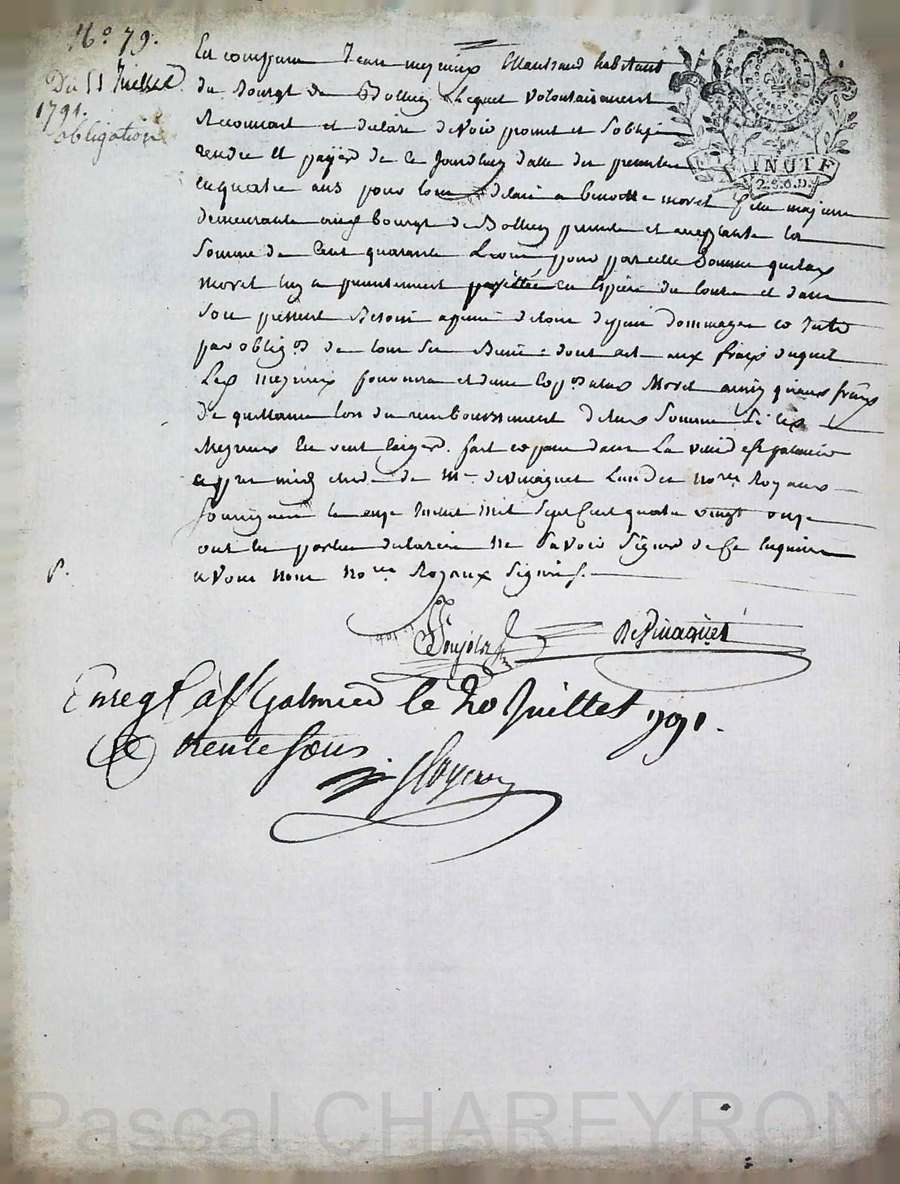 N.o 79.
Du 11 Juillet
1791.
obligation
MINUTE
2.S.6.D.
Est comparu Jean mezieux Marchand habitant
du Bourgt de Lequel volontairement
Reconnait et declare devoir promet et s'oblige
rendre et payer de ce Jourdhuy datte des presentes
en quatre ans pour tout delai a benoitte moret fille majeure
demeurante bourgt de presente et acceptante la
Somme de Cent quarante Livres pour pareille Somme que lad
moret luy a presentement en Espece du Cours et dans
Son present Besoin a peine de tous depens dommages et Intts
par oblig.on de tous Ses Biens dont act aux frais duquel
Led mezieux fournira a lad Moret ainsy qu'aux frais
de quittance lors du remboursement de lad Somme Si led
Mezieux fait et passé dans La ville de St galmier
apres midy etude de Me. depinaquet L'un des nores Royaux
Soussignés le onze Juillet mil Sept Cent quatre vingt onze
ont les parties declaré ne Savoir Signer de Ce Enquises
avons nous nores Royaux Signés.
DePinaquet
Enreg.t à St Galmier le 20 Juillet 1791.
R trente sous
Pascal CHAREYRON